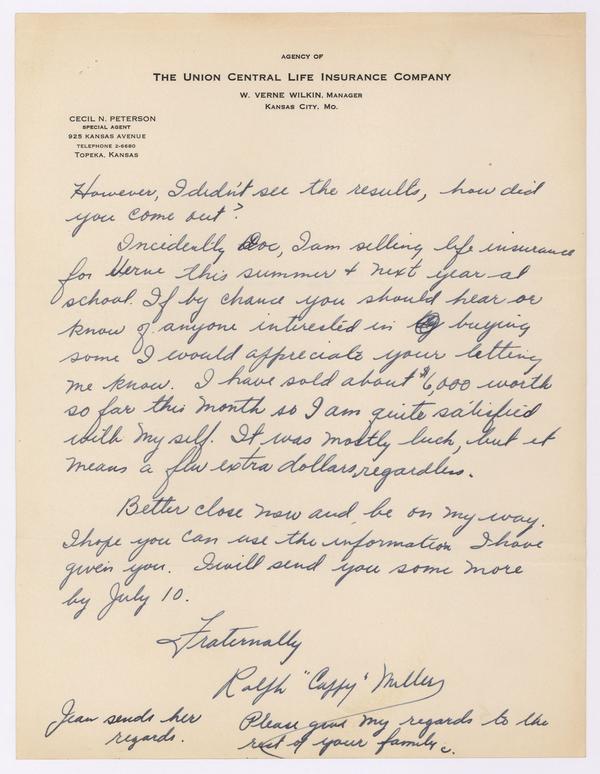 AGENCY OF
THE UNION CENTRAL LIFE INSURANCE COMPANY
W. VERNE WILKIN, MANAGER
KANSAS CITY, MO.
CECIL N. PETERSON
SPECIAL AGENT
925 KANSAS AVENUE
TELEPHONE 2-6680
TOPEKA, KANSAS
However, I didn't see the results, how did
you come out?
Incidently Doc, I am selling life insurance
for Verne this summer & next year at
school. If by chance you should hear or
know of anyone interested in buying
some I would appreciate your letting
me know. I have sold about $6,000 worth
so far this month so I am quite satisfied
with my self. It was mostly luck, but it
means a few extra dollars, regardless.
Better close now and be on my way.
I hope you can use the information I have
given you. I will send you some more
by July 10.
Fraternally
Ralph "Cappy" Miller
Jean sends her
regards.
Please give my regards to the
rest of your family.